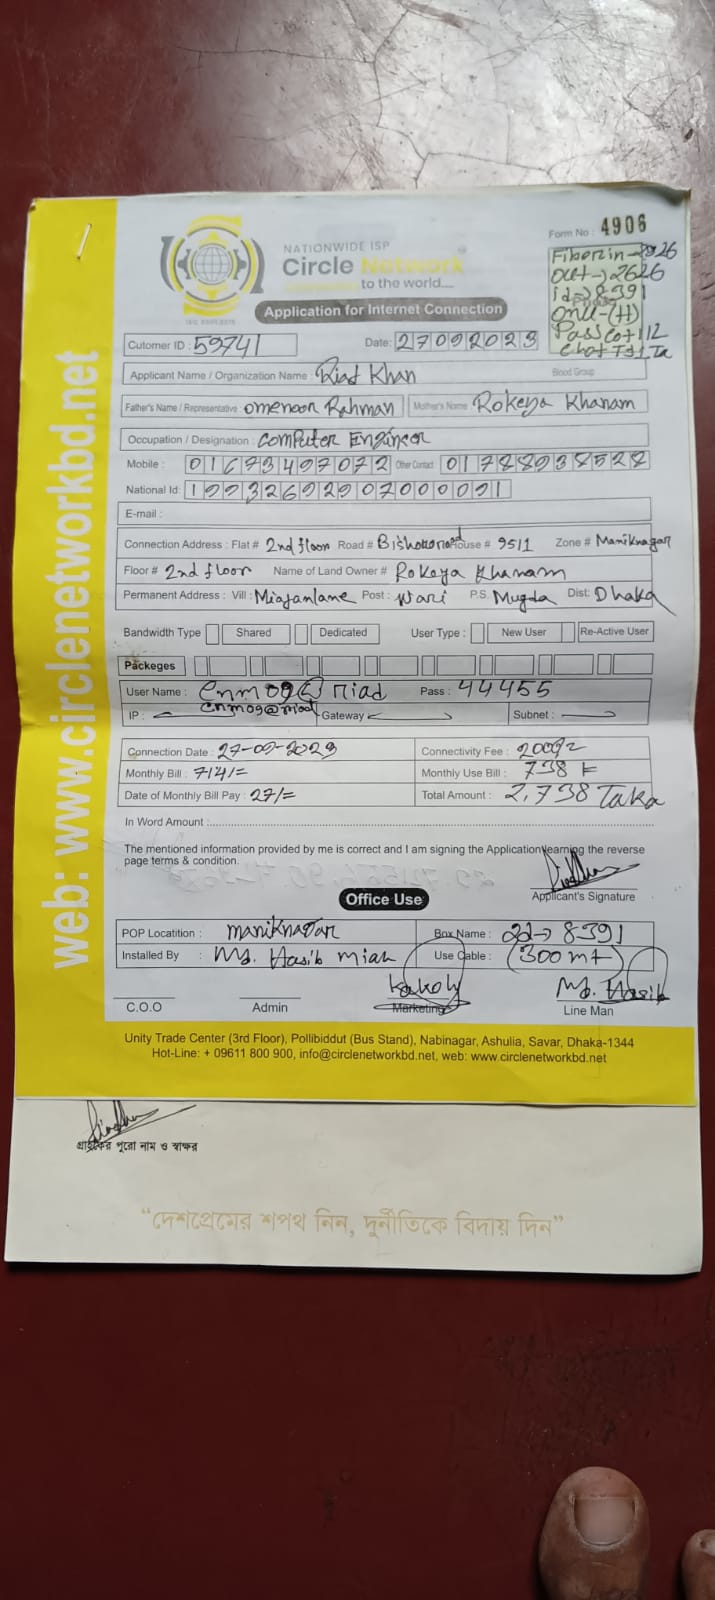 NATIONWIDE ISP
Circle Network
to the world....
Form No : 4906
Fiber in - 2926
out → 2626
id → 8391
onu - (H)
Application for Internet Connection
Cutomer ID : 59741 Date: 27092023
Applicant Name / Organization Name : Riad Khan Blood Group
Father's Name / Representative omenoor Rahman Mother's Name Rokeya Khanam
Occupation / Designation : Computer Engineer
Mobile : 01673497072 Other Contact 01788938528
National Id: 19932692907000091
E-mail :
Connection Address : Flat # 2nd floor Road # House # 95/1 Zone # Maniknagar
Floor # 2nd floor Name of Land Owner # Rokeya Khanam
Permanent Address : Vill : Miajanlane Post : Wari P.S. Mugda Dist: Dhaka
Bandwidth Type Shared Dedicated User Type : New User Re-Active User
Packeges
User Name : cnm09@riad Pass : 44455
IP : cnm09@riad Gateway Subnet :
Connection Date : 27-09-2023 Connectivity Fee : 2000/=
Monthly Bill : 714/= Monthly Use Bill : 738
Date of Monthly Bill Pay : 27/= Total Amount : 2,738 Taka
In Word Amount :
The mentioned information provided by me is correct and I am signing the Application learning the reverse
page terms & condition.
Applicant's Signature
Office Use
POP Locatition : maniknagar Box Name : 8391
Installed By : Md. Hasib miah Use Cable : (300 mt)
Kakoly Md. Hasib
C.O.O Admin Marketing Line Man
Unity Trade Center (3rd Floor), Pollibiddut (Bus Stand), Nabinagar, Ashulia, Savar, Dhaka-1344
Hot-Line: + 09611 800 900, info@circlenetworkbd.net, web: www.circlenetworkbd.net
web: www.circlenetworkbd.net
গ্রাহকের পুরো নাম ও স্বাক্ষর
“দেশপ্রেমের শপথ নিন, দুর্নীতিকে বিদায় দিন”